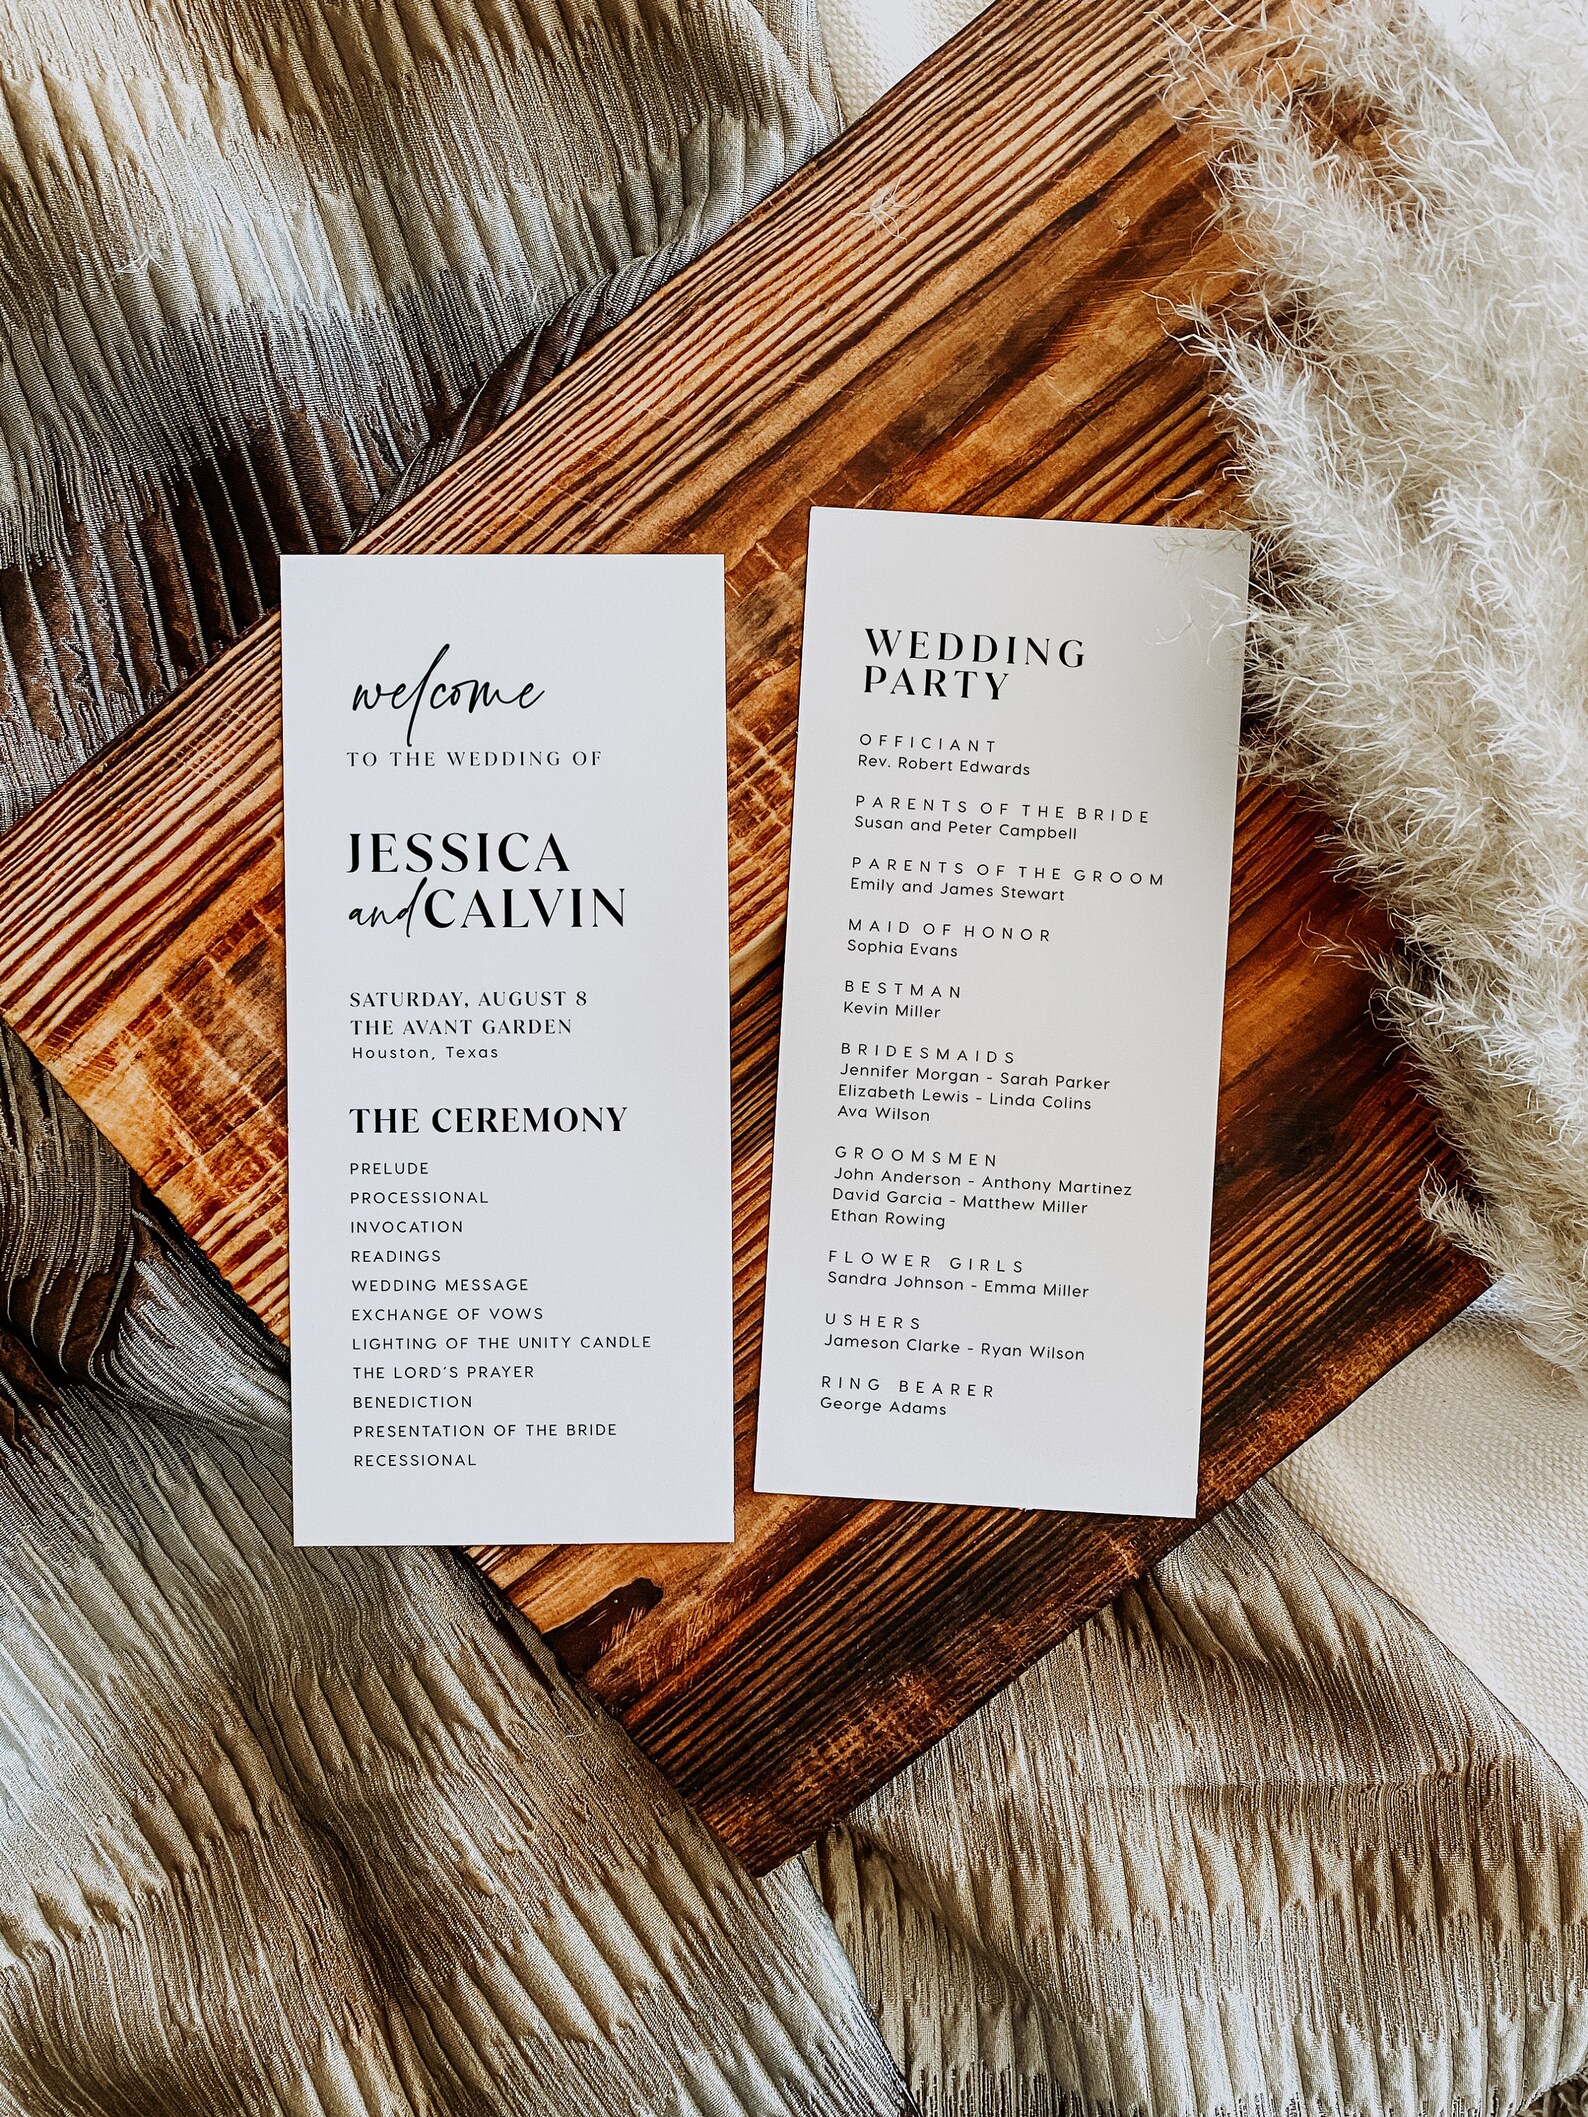 welcome
TO THE WEDDING OF
JESSICA
and CALVIN
SATURDAY, AUGUST 8
THE AVANT GARDEN
Houston, Texas
THE CEREMONY
PRELUDE
PROCESSIONAL
INVOCATION
READINGS
WEDDING MESSAGE
EXCHANGE OF VOWS
LIGHTING OF THE UNITY CANDLE
THE LORD'S PRAYER
BENEDICTION
PRESENTATION OF THE BRIDE
RECESSIONAL
WEDDING
PARTY
OFFICIANT
Rev. Robert Edwards
PARENTS OF THE BRIDE
Susan and Peter Campbell
PARENTS OF THE GROOM
Emily and James Stewart
MAID OF HONOR
Sophia Evans
BESTMAN
Kevin Miller
BRIDESMAIDS
Jennifer Morgan - Sarah Parker
Elizabeth Lewis - Linda Colins
Ava Wilson
GROOMSMEN
John Anderson - Anthony Martinez
David Garcia - Matthew Miller
Ethan Rowing
FLOWER GIRLS
Sandra Johnson - Emma Miller
USHERS
Jameson Clarke - Ryan Wilson
RING BEARER
George Adams